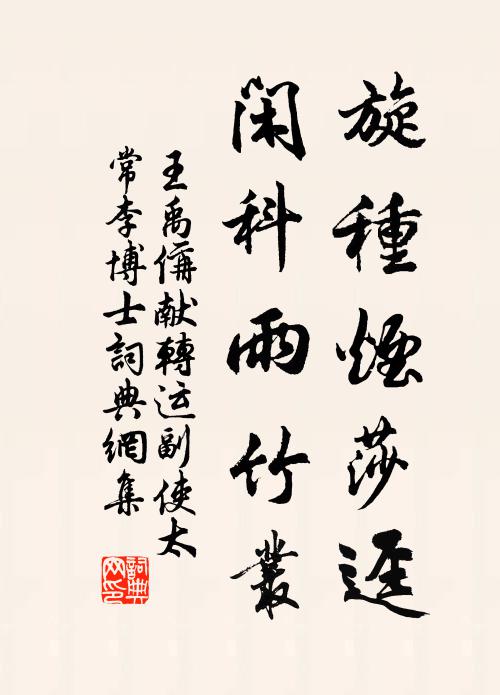 旋種煙莎逕
閑科雨竹叢
王禹偁献轉运副使太
常李博士詞典網集
詞典网印